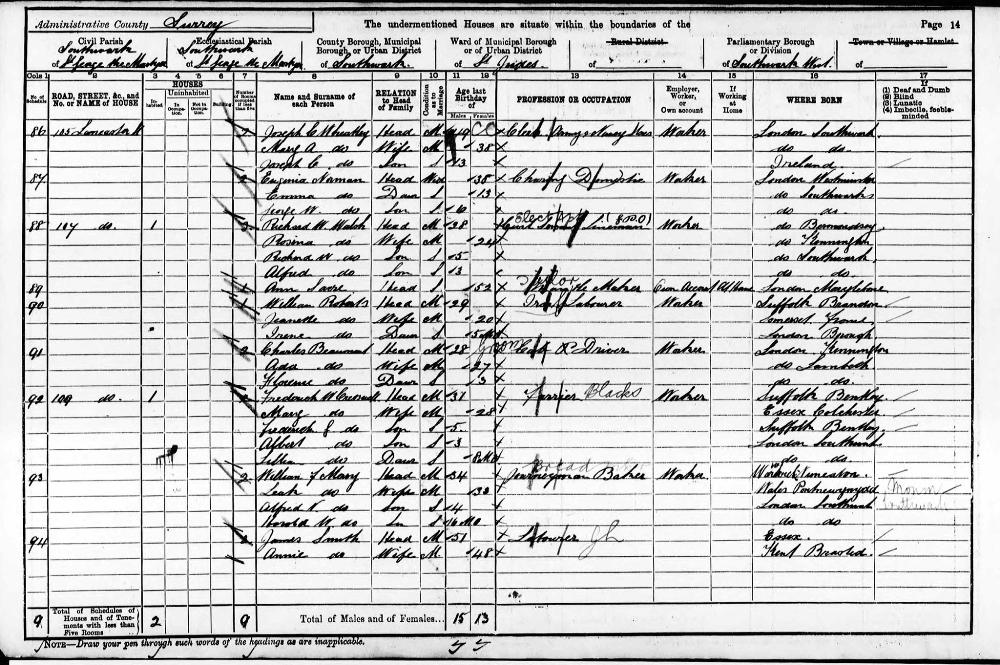 Administrative County Surrey The undermentioned Houses are situate within the boundaries of the Page 14
Civil Parish Ecclesiastical Parish County Borough, Municipal Borough, or Urban District Ward of Municipal Borough or of Urban District Rural District Parliamentary Borough or Division Town or Village or Hamlet
of Southwark St George the Martyr of Southwark St George the Martyr of Southwark of St Judes of of Southwark West of
Cols 1 2 3 4 5 6 7 8 9 10 11 12 13 14 15 16 17
No. of Schedule ROAD, STREET, &c., and No. or NAME of HOUSE HOUSES Inhabited Uninhabited In Occupation Not in Occupation Building Number of Rooms occupied if less than five Name and Surname of each Person RELATION to Head of Family Condition as to Marriage Age last Birthday of Males Females PROFESSION OR OCCUPATION Employer, Worker, or Own account If Working at Home WHERE BORN If (1) Deaf and Dumb (2) Blind (3) Lunatic (4) Imbecile, feeble-minded
86 105 Joseph C Wheatley Head M 49 Clerk Army & Navy Worker London Southwark
Mary A do Wife M 38 do do
Joseph C do Son S 13 Ireland
87 Eugenia Norman Head Wid 38 Charing Domestic Worker London Westminster
Emma do Daur S 13 do Southwark
George W. do Son S 10 do do
88 107 do. 1 Richard W. Walsh Head M 28 Lineman (G.P.O) Worker do Bermondsey
Rosina do Wife M 24 do Kennington
Richard W. do Son S 5 do Southwark
Alfred do Son S 3 do do.
89 Ann Head S 52 Tailor Maker Own Account At Home London Marylebone
90 William Roberts Head M 29 Iron Labourer Worker Suffolk Brandon
Jeanette do Wife M 20 Somerset Frome
Irene do Daur S 5 mos London Borough
91 Charles Beaumont Head M 28 Groom Cab Driver Worker London Kennington
Ada do Wife M 27 do Lambeth
Florence do Daur S 3 do do.
92 109 do. 1 Frederick W Head M 31 Farrier Blacks Worker Suffolk Bentley
Mary do Wife M 28 Essex Colchester
Frederick J do Son S 5 Suffolk Bentley
Albert do Son S 3 London Southwark
Lillian do Daur S 8 Mo do do.
93 William J Mary Head M 34 Bread Journeyman Baker Worker Warwick Nuneaton
Leah do Wife M 33 Wales Pontnewynydd Monm
Alfred V. do Son S 4 London Southwark
Harold W. do Son S 10 Mo do do
94 James Smith Head M 51 Labourer Essex
Annie do Wife M 48 Kent Brasted
9 Total of Schedules of Houses and of Tenements with less than Five Rooms 2 9 Total of Males and of Females... 15 13
NOTE—Draw your pen through such words of the headings as are inapplicable.